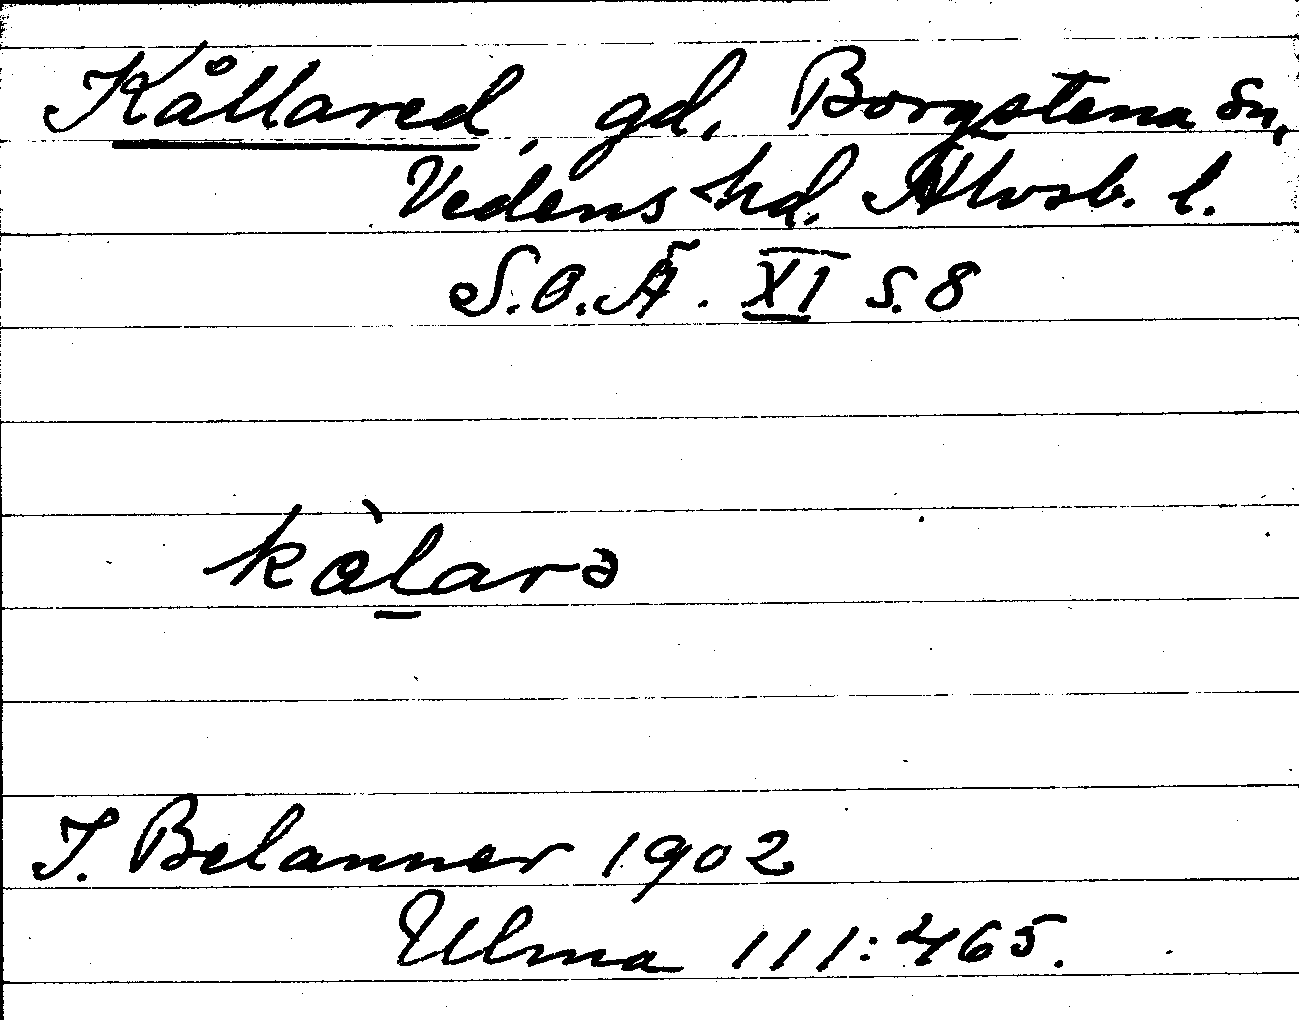 Kållared, gd, Borgstena sn,
Vedens hd. Älvsb. l.
S.O.Ä. XI s. 8
kålarə
T. Belanner 1902
Ulma 111:465.